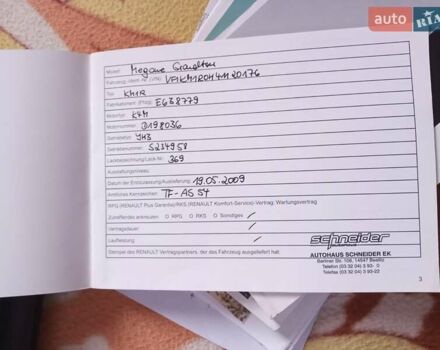 auto RIA
Modell: Megane Grandtour
Fahrzeug.-Ident.-Nr. (VIN)
Typ KM1R
Fabriknummer (Fzg) E638779
Motortyp K4M
Motornummer D198036
Getriebetyp JH3
Getriebenummer S234958
Lackbezeichnung/Lack-Nr. 369
Ausstattungsniveau
Datum der Erstzulassung/Auslieferung 19.05.2009
Amtliches Kennzeichen TF-AS 54
RPG (RENAULT Plus Garantie)/RKS (RENAULT Komfort-Service)-Vertrag; Wartungsvertrag
Zutreffendes ankreuzen RPG RKS Sonstiges
Vertragsdauer
Laufleistung
Stempel des RENAULT Vertragspartners, der das Fahrzeug ausgeliefert hat.
schneider
AUTOHAUS SCHNEIDER EK
Berliner Str. 106, 14547 Beelitz
Telefon (03 32 04) 3 93- 0
Telefax (03 32 04) 3 93-22
3